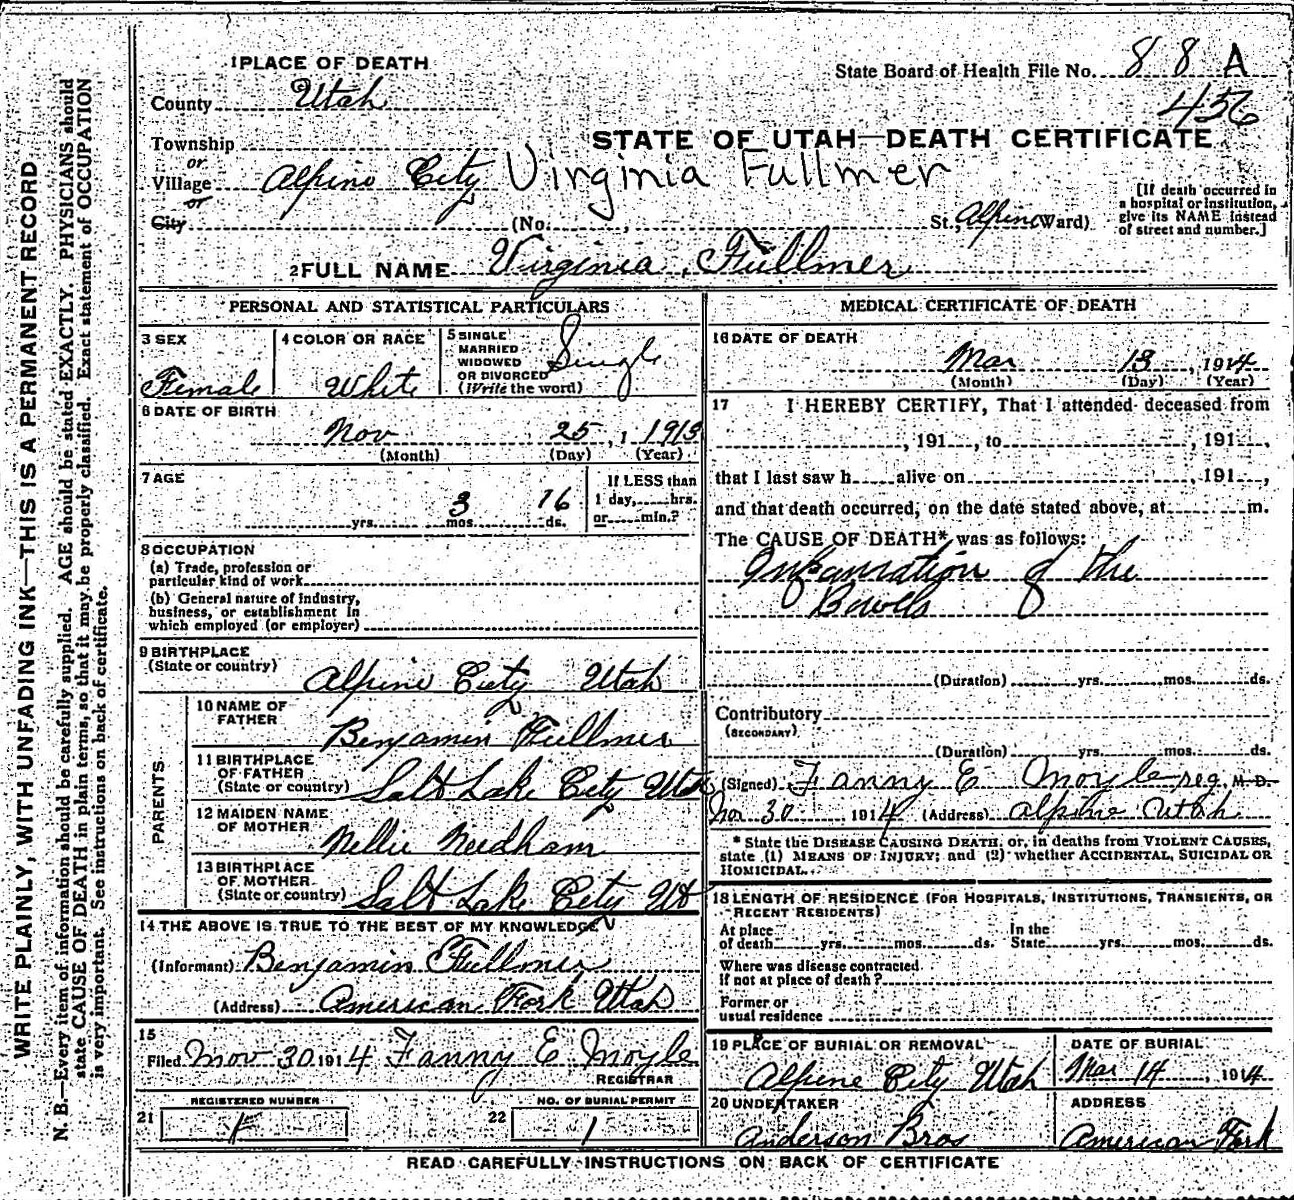 WRITE PLAINLY, WITH UNFADING INK—THIS IS A PERMANENT RECORD
N. B.—Every item of information should be carefully supplied. AGE should be stated EXACTLY. PHYSICIANS should
state CAUSE OF DEATH in plain terms, so that it may be properly classified. Exact statement of OCCUPATION
is very important. See instructions on back of certificate.
1 PLACE OF DEATH
County Utah
State Board of Health File No. 88 A
456
Township
or
Village Alpine City
or
City
STATE OF UTAH—DEATH CERTIFICATE
Virginia Fullmer
(No. St., Alpine Ward)
[If death occurred in
a hospital or institution,
give its NAME instead
of street and number.]
2 FULL NAME Virginia Fullmer
PERSONAL AND STATISTICAL PARTICULARS
3 SEX
Female
4 COLOR OR RACE
White
5 SINGLE
MARRIED
WIDOWED
OR DIVORCED
(Write the word)
Single
6 DATE OF BIRTH
Nov 25, 1913
(Month) (Day) (Year)
7 AGE
yrs. 3 mos. 16 ds.
If LESS than
1 day, hrs.
or min.?
8 OCCUPATION
(a) Trade, profession or
particular kind of work
(b) General nature of industry,
business, or establishment in
which employed (or employer)
9 BIRTHPLACE
(State or country)
Alpine City Utah
PARENTS
10 NAME OF
FATHER
Benjamin Fullmer
11 BIRTHPLACE
OF FATHER
(State or country)
Salt Lake City Utah
12 MAIDEN NAME
OF MOTHER
Nellie Needham
13 BIRTHPLACE
OF MOTHER
(State or country)
Salt Lake City Ut
14 THE ABOVE IS TRUE TO THE BEST OF MY KNOWLEDGE
(Informant) Benjamin Fullmer
(Address) American Fork Utah
15
Filed Nov 30 1914 Fanny E Moyle
REGISTRAR
REGISTERED NUMBER
21
NO. OF BURIAL PERMIT
22 1
MEDICAL CERTIFICATE OF DEATH
16 DATE OF DEATH
Mar 13, 1914
(Month) (Day) (Year)
17 I HEREBY CERTIFY, That I attended deceased from
, 191 , to , 191 ,
that I last saw h alive on , 191 ,
and that death occurred, on the date stated above, at m.
The CAUSE OF DEATH* was as follows:
of the
Bowels
(Duration) yrs. mos. ds.
Contributory
(SECONDARY)
(Duration) yrs. mos. ds.
(Signed) Fanny E Moyle reg. M. D.
Nov 30 1914 (Address) Alpine Utah
* State the DISEASE CAUSING DEATH, or, in deaths from VIOLENT CAUSES,
state (1) MEANS OF INJURY; and (2) whether ACCIDENTAL, SUICIDAL OR
HOMICIDAL.
18 LENGTH OF RESIDENCE (FOR HOSPITALS, INSTITUTIONS, TRANSIENTS, OR
RECENT RESIDENTS)
At place
of death yrs. mos. ds.
In the
State yrs. mos. ds.
Where was disease contracted
if not at place of death?
Former or
usual residence
19 PLACE OF BURIAL OR REMOVAL
Alpine City Utah
DATE OF BURIAL
Mar 14, 1914
20 UNDERTAKER
Anderson Bros
ADDRESS
American Fork
READ CAREFULLY INSTRUCTIONS ON BACK OF CERTIFICATE